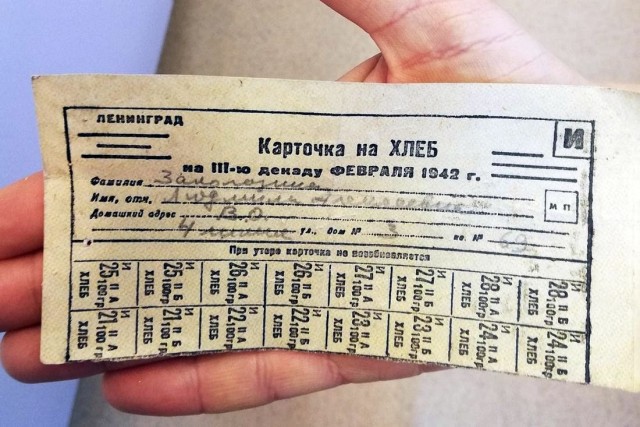 ЛЕНИНГРАД
И
Карточка на ХЛЕБ
на III-ю декаду ФЕВРАЛЯ 1942 г.
Фамилия
Имя, отч. Людмила
М П
Домашний адрес В.О.
4 линия ул., дом № 3 кв. №
При утере карточка не возобновляется
И 25 П А 100 гр ХЛЕБ
И 25 П Б 100 гр ХЛЕБ
И 26 П А 100 гр ХЛЕБ
И 26 П Б 100 гр ХЛЕБ
И 27 П А 100 гр ХЛЕБ
И 27 П Б 100 гр ХЛЕБ
И 28 П А 100 гр ХЛЕБ
И 28 П Б 100 гр ХЛЕБ
И 21 П А 100 гр ХЛЕБ
И 21 П Б 100 гр ХЛЕБ
И 22 П А 100 гр ХЛЕБ
И 22 П Б 100 гр ХЛЕБ
И 23 П А 100 гр ХЛЕБ
И 23 П Б 100 гр ХЛЕБ
И 24 П А 100 гр ХЛЕБ
И 24 П Б 100 гр ХЛЕБ